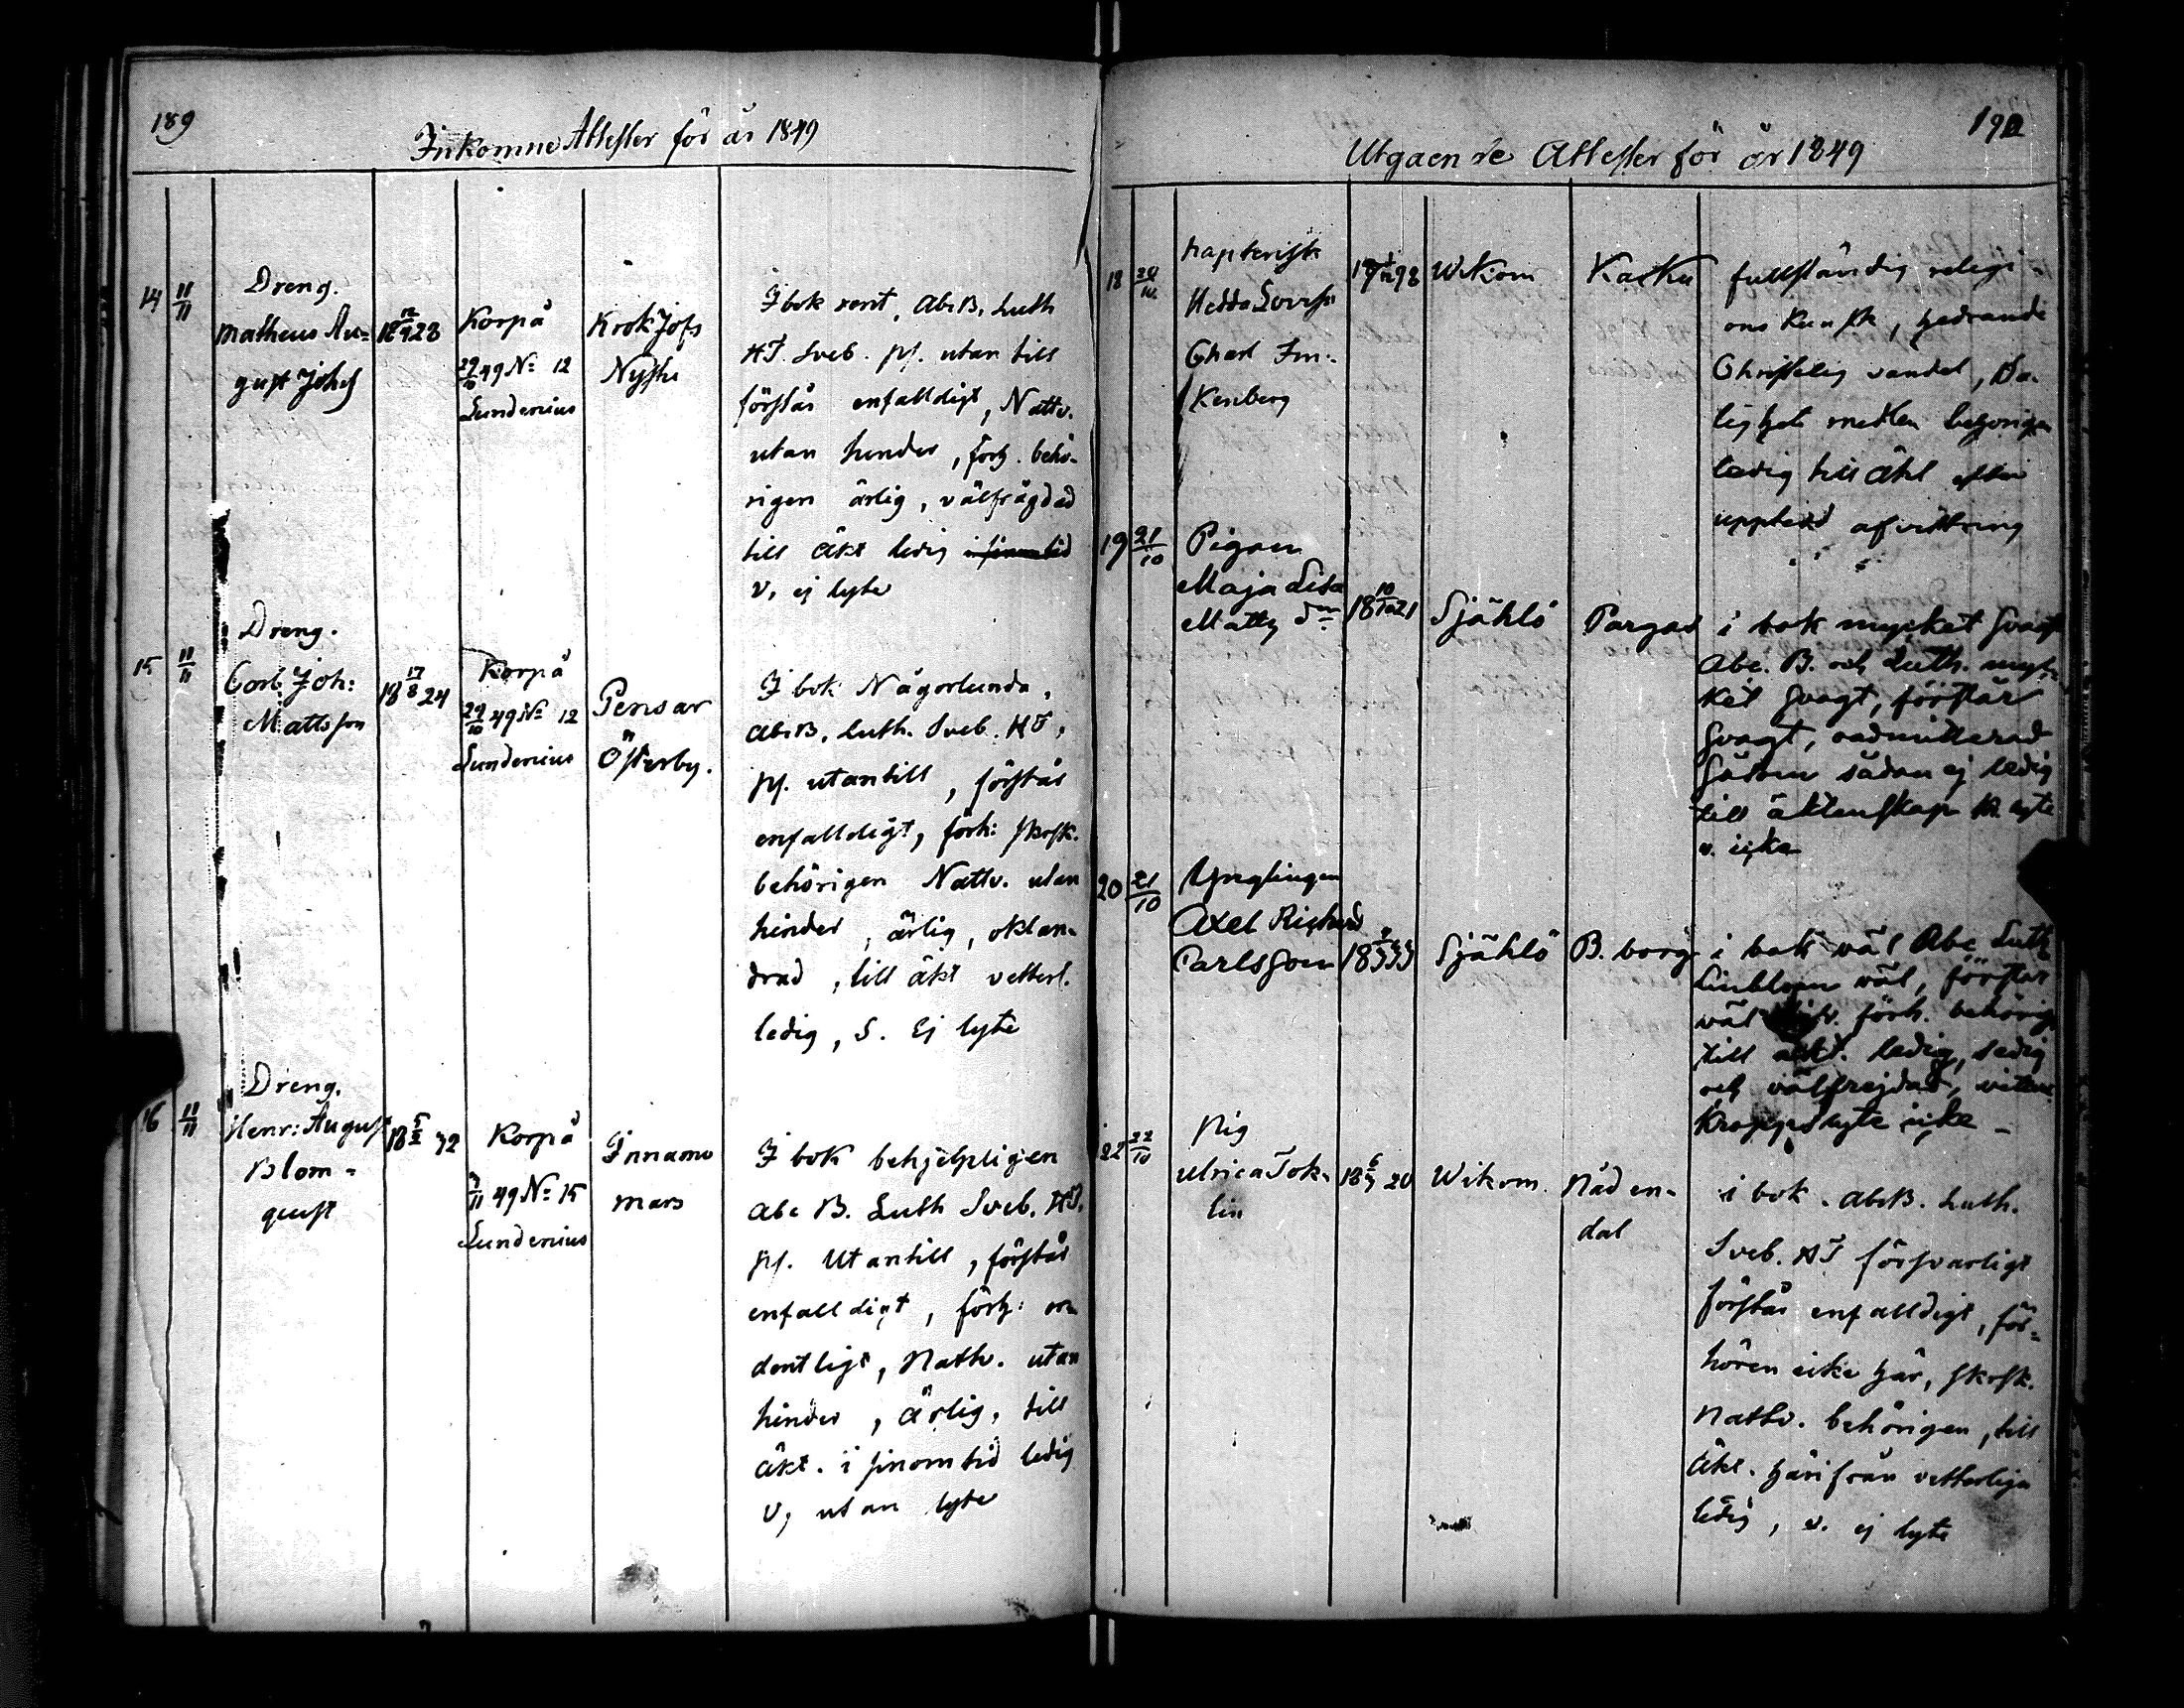 189
Inkomne Attester för år 1849
14 11/11
Dreng.
Matheus Au-
gust Johs
18 12/9 28
Korpå
29/10 49 No 12
Lundenius
Krok Jofs
Nystu
I bok rent, Abc B. Luth
HT. Sveb. ps. utan till
förstår enfalldigt, Nattv.
utan hinder, förh. behö-
rigen ärlig, välfrägdad
till äkt ledig i sinom tid
v, ej lyte
15 11/11
Dreng.
Carl Joh:
Mattsson
18 17/8 24
Korpå
29/10 49 No 12
Lundenius
Pensar
Österby.
I bok Någorlunda,
Abc B, Luth. Sveb. HT,
ps. utantill, förstår
enfalldigt, förh: skrsk.
behörigen Nattv. utan
hinder, ärlig, oklan-
drad, till äkt vetterl.
ledig, S. Ej lyte
16 11/11
Dreng.
Henr: August
Blom-
qust
18 5/2 32
Korpå
7/11 49 No 15
Lundenius
Innamo
mars
I bok behjelpligen
Abc B. Luth Sveb. HT.
ps. Utantill, förstår
enfalldigt, förh: or-
dentligt, Nattv. utan
hinder, ärlig, till
äkt. i sinom tid ledig
V, utan lyte
190
Utgaende Attester för år 1849
18 20/10
Hedda Lovisa
Charl Fin-
kenberg
98
Wikom
Kasku
fullständig religi-
ons kunsk,
Christelig vandel, Da-
behörigen
ledig till äkt efter
afvittring
19 21/10
Pigan
Maja Lisa
Matts dr
18 10/10 21
Själlö
Pargas
i bok mycket svagt
Abc. B. och Luth. myc-
ket svagt, förstår
svagt, admitterad
såsom sådan ej ledig
till äktenskap k. lyte
v. icke
20 21/10
Ynglingen
Axel Richard
Carlsson
18 33
Själlö
B. borg
i bok wäl Abc Luth
Linblom wäl, förstår
wäl förh. behörig
till äkt. ledig, sedig
och välfrejdad, vitterl.
kroppslyte icke
22 22/10
Pig
Ulrica Tok-
lin
18 6/7 20
Wikom
Nåden-
dal
i bok. Abc B. Luth.
Sveb. HT försvarligt
förstår enfalldigt, för-
hören icke här, skrsk.
Nattv. behörigen, till
Äkt. härifrån vetterliga
ledig, v. ej lyte